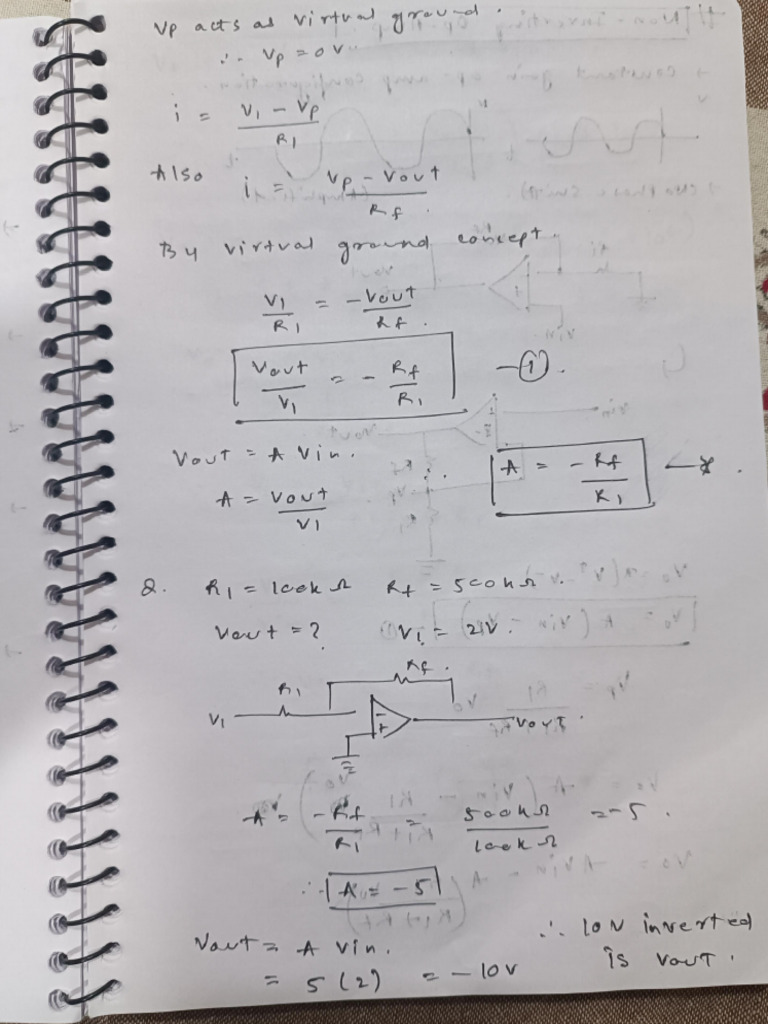 Vp acts as virtual ground.
∴ Vp = 0 V
i = (V1 - Vp) / R1
Also i = (Vp - Vout) / Rf.
By virtual ground concept.
V1 / R1 = -Vout / Rf.
Vout / V1 = - Rf / R1 — ①.
Vout = A Vin.
A = Vout / V1 ∴ A = - Rf / R1
2. R1 = 100k Ω Rf = 500k Ω.
Vout = ? V1 = 2V.
Rf.
R1
V1 - + Vout.
A = -Rf / R1 = 500k Ω / 100k Ω = -5.
∴ A = -5
Vout = A Vin. ∴ 10V inverted
= 5 (2) = -10V is Vout.